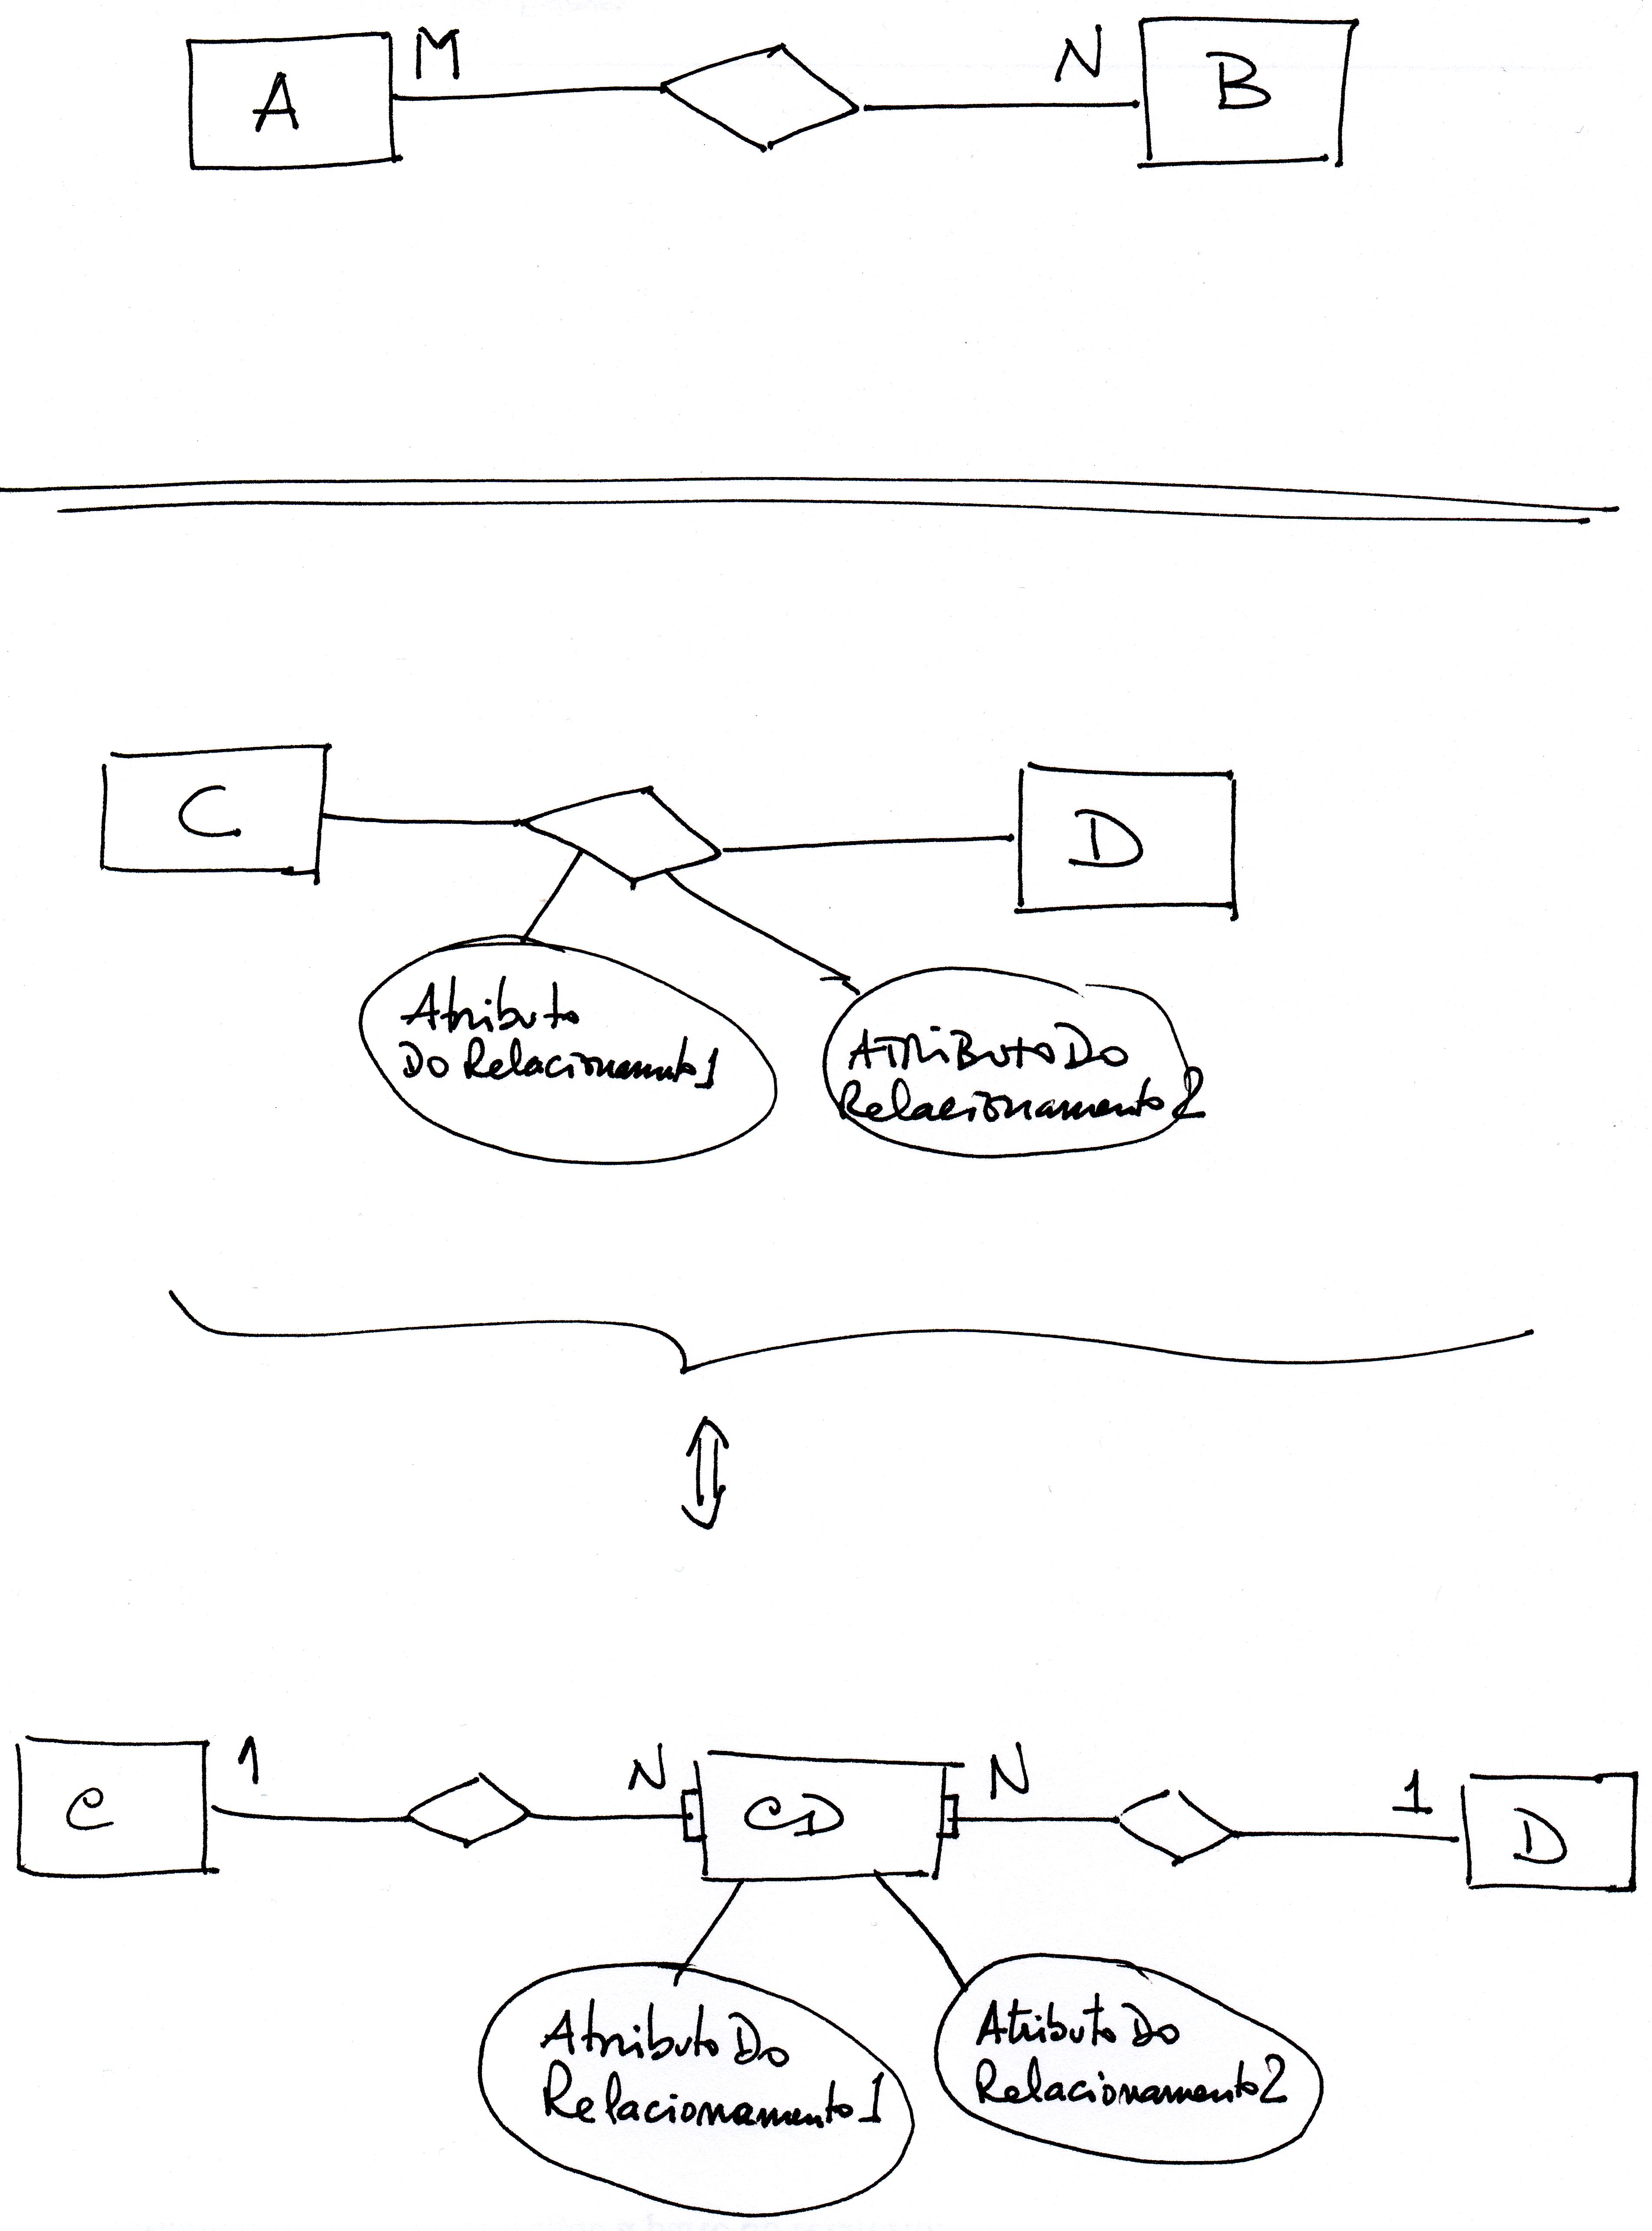 A M N B
C D
Atributo
Do Relacionamento1
AtributoDo
Relacionamento2
C 1 N CD N 1 D
AtributoDo
Relacionamento1
AtributoDo
Relacionamento2